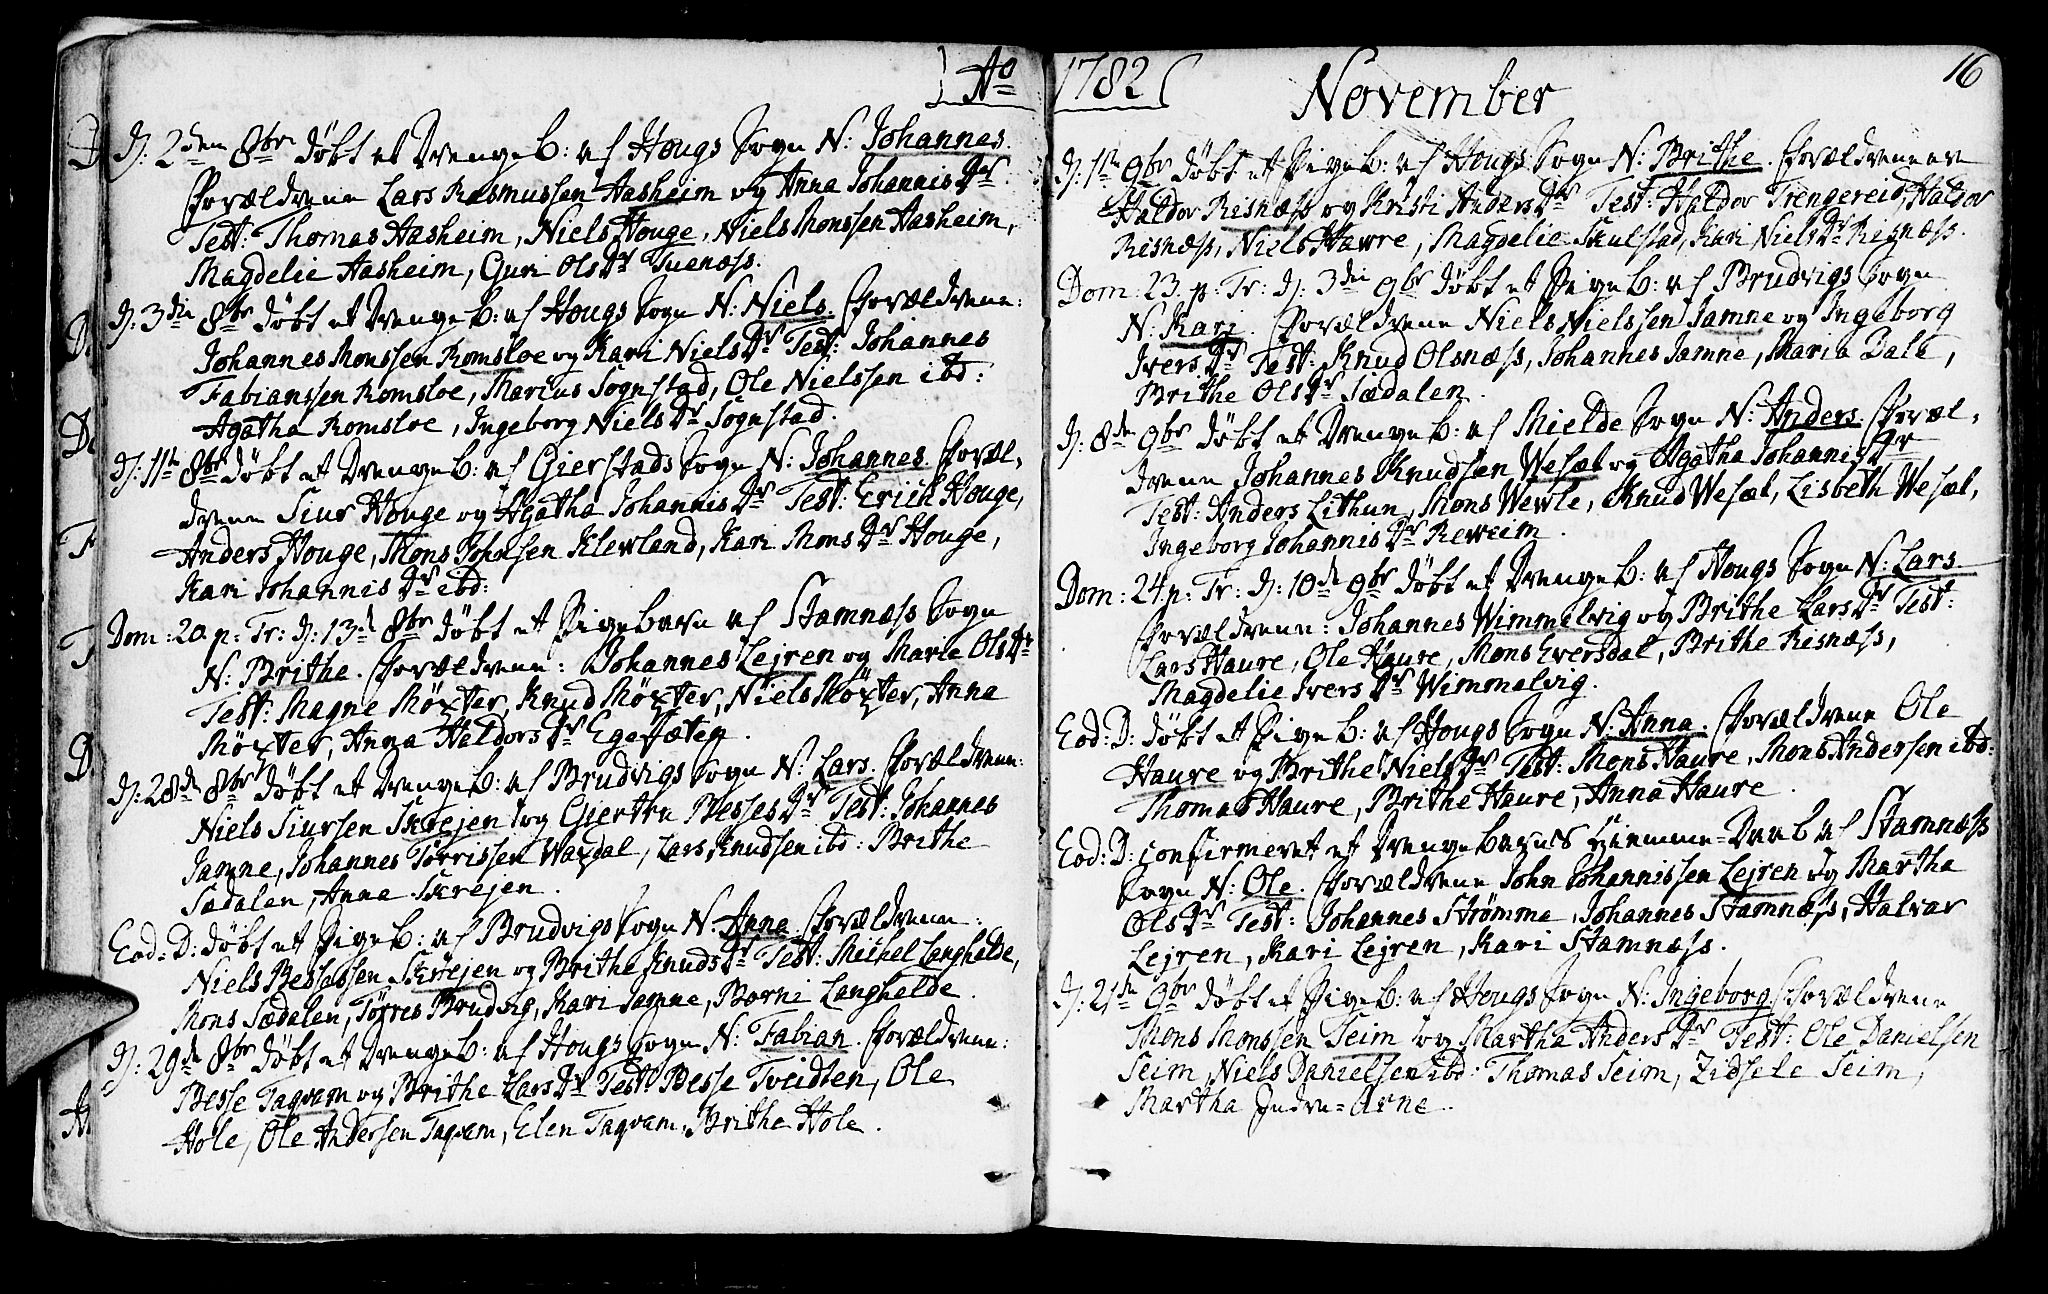 Ao
D: 2den 8br døbt et Drengeb: af Hougs Sogn N: Johannes.
Forældrene Lars Rasmussen Aasheim og Anna Johannis Dr.
Test: Thomas Aasheim, Niels Houge, Niels Monssen Aasheim,
Magdelie Aasheim, Guri Ols Dr Tuenæss.
D: 3die 8br døbt et Drengeb: af Hougs Sogn N: Niels. Forældrene:
Johannes Monssen Romsloe og Kari Niels Dr Test: Johannes
Fabianssen Romsloe, Marcus Sognstad, Ole Nielssen ibd:
Agatha Romsloe, Ingeborg Niels Dr Sognstad.
D: 11te 8br døbt et Drengeb: af Gierstads Sogn N: Johannes. Foræl-
drene Siur Houge og Agatha Johannis Dr Test: Erich Houge,
Anders Houge, Mons Johnsen Klewland, Kari Mons Dr Houge,
Kari Johannis Dr ibd:
Dom: 20. p: Tr: D: 13d 8br døbt et Pigebarn af Stamnæss Sogn
N: Brithe. Forældrene: Johannes Lejren og Marie Ols Dr
Test: Magne Møxter, Knud Møxter, Niels Møxter, Anna
Møxter, Anna Haldors Dr Egesæten.
D: 28de 8br døbt et Drengeb: af Brudvigs Sogn N: Lars. Forældrene:
Niels Siursen Skrejen og Giertru Besses Dr Test: Johannes
Jamne, Johannes Tørrissen Waxdal, Lars Knudsen ibd: Brithe
Sædalen, Anna Skrejen.
Eod: D: døbt et Pigeb: af Brudvigs Sogn N: Anna Forældrene:
Niels Bessessen Skrejen og Brithe Knuds Dr Test: Michel Langhelde,
Mons Sædalen, Tørres Brudvig, Kari Jamne, Borni Langhelde.
D: 29de 8br døbt et Drengeb: af Hougs Sogn N: Fabian. Forældrene:
Besse Taqvam og Brithe Lars Dr Test: Besse Tveidten, Ole
Hole, Ole Andersen Taqvam, Elen Taqvam, Brithe Hole.
1782
November
16
D: 1te 9br døbt et Pigeb: af Hougs Sogn N: Brithe. Forældrene er
Haldor Risnæss og Kristi Anders Dr Test: Haldor Trengereid, Haldor
Risnæss, Niels Hawre, Magdelie Skulstad, Kari Niels Dr Risnæss.
Dom: 23. p: Tr: D: 3die 9br døbt et Pigeb: af Brudvigs Sogn
N: Kari. Forældrene Niels Nielssen Jamne og Ingeborg
Ivers Dr Test: Knud Olsnæss, Johannes Jamne, Maria Dale,
Brithe Ols Dr Sædalen.
D: 8de 9br døbt et Drengeb: af Mielde Sogn N: Anders. Foræl-
drene Johannes Knudsen Wesæt og Agatha Johannis Dr
Test: Anders Lithun, Mons Wewle, Knud Wesæt, Lisbeth Wesæt,
Ingeborg Johannis Dr Reweim.
Dom: 24. p: Tr: D: 10de 9br døbt et Drengeb: af Hougs Sogn N: Lars.
Forældrene: Johannes Wimmelvig og Brithe Lars Dr Test:
Lars Haure, Ole Haure, Mons Eversdal, Brithe Risnæss,
Magdelie Ivers Dr Wimmelvig.
Eod: D: døbt et Pigeb: af Hougs Sogn N: Anna. Forældrene Ole
Haure og Brithe Niels Dr Test: Mons Haure, Mons Andersen ibd:
Thomas Haure, Brithe Haure, Anna Haure.
Eod: D: confirmeret et Drengebarns Hiemme=Daab af Stamnæss
Sogn N: Ole. Forældrene John Johannissen Lejren og Martha
Ols Dr Test: Johannes Strømme, Johannes Stamnæss, Halvar
Lejren, Kari Lejren, Kari Stamnæss.
D: 21de 9br døbt et Pigeb: af Hougs Sogn N: Ingeborg. Forældrene
Mons Monssen Seim og Martha Anders Dr Test: Ole Danielsen
Seim, Niels Danielsen ibd: Thomas Seim, Zidsele Seim,
Martha Indre=Arne.